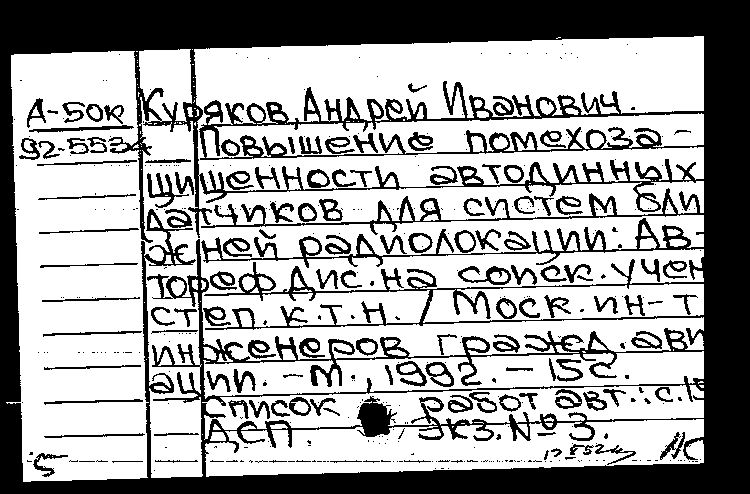 А-50к Куряков, Андрей Иванович.
92-5534 Повышение помехоза-
щищенности автодинных
датчиков для систем бли
жней радиолокации: Ав-
тореф. дис. на соиск. учен
степ. к.т.н. / Моск. ин-т
инженеров гражд. ави
ации. - М., 1992. - 15 с.
Список работ авт.: с. 15
ДСП. Экз. № 3.
5 НС